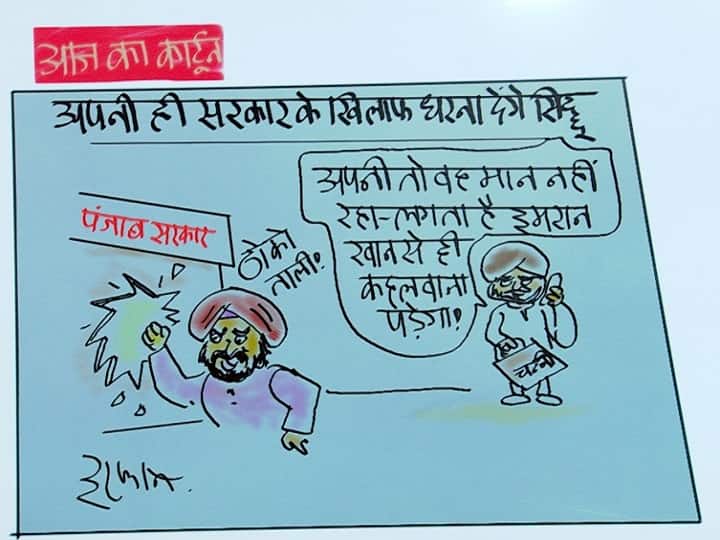 आज का कार्टून
अपनी ही सरकार के खिलाफ धरना देंगे सिद्धू
पंजाब सरकार
ठोको
ताली!
अपनी तो वह मान नहीं
रहा-लगता है इमरान
खान से ही
कहलवाना
पड़ेगा!
चन्नी
इरफान